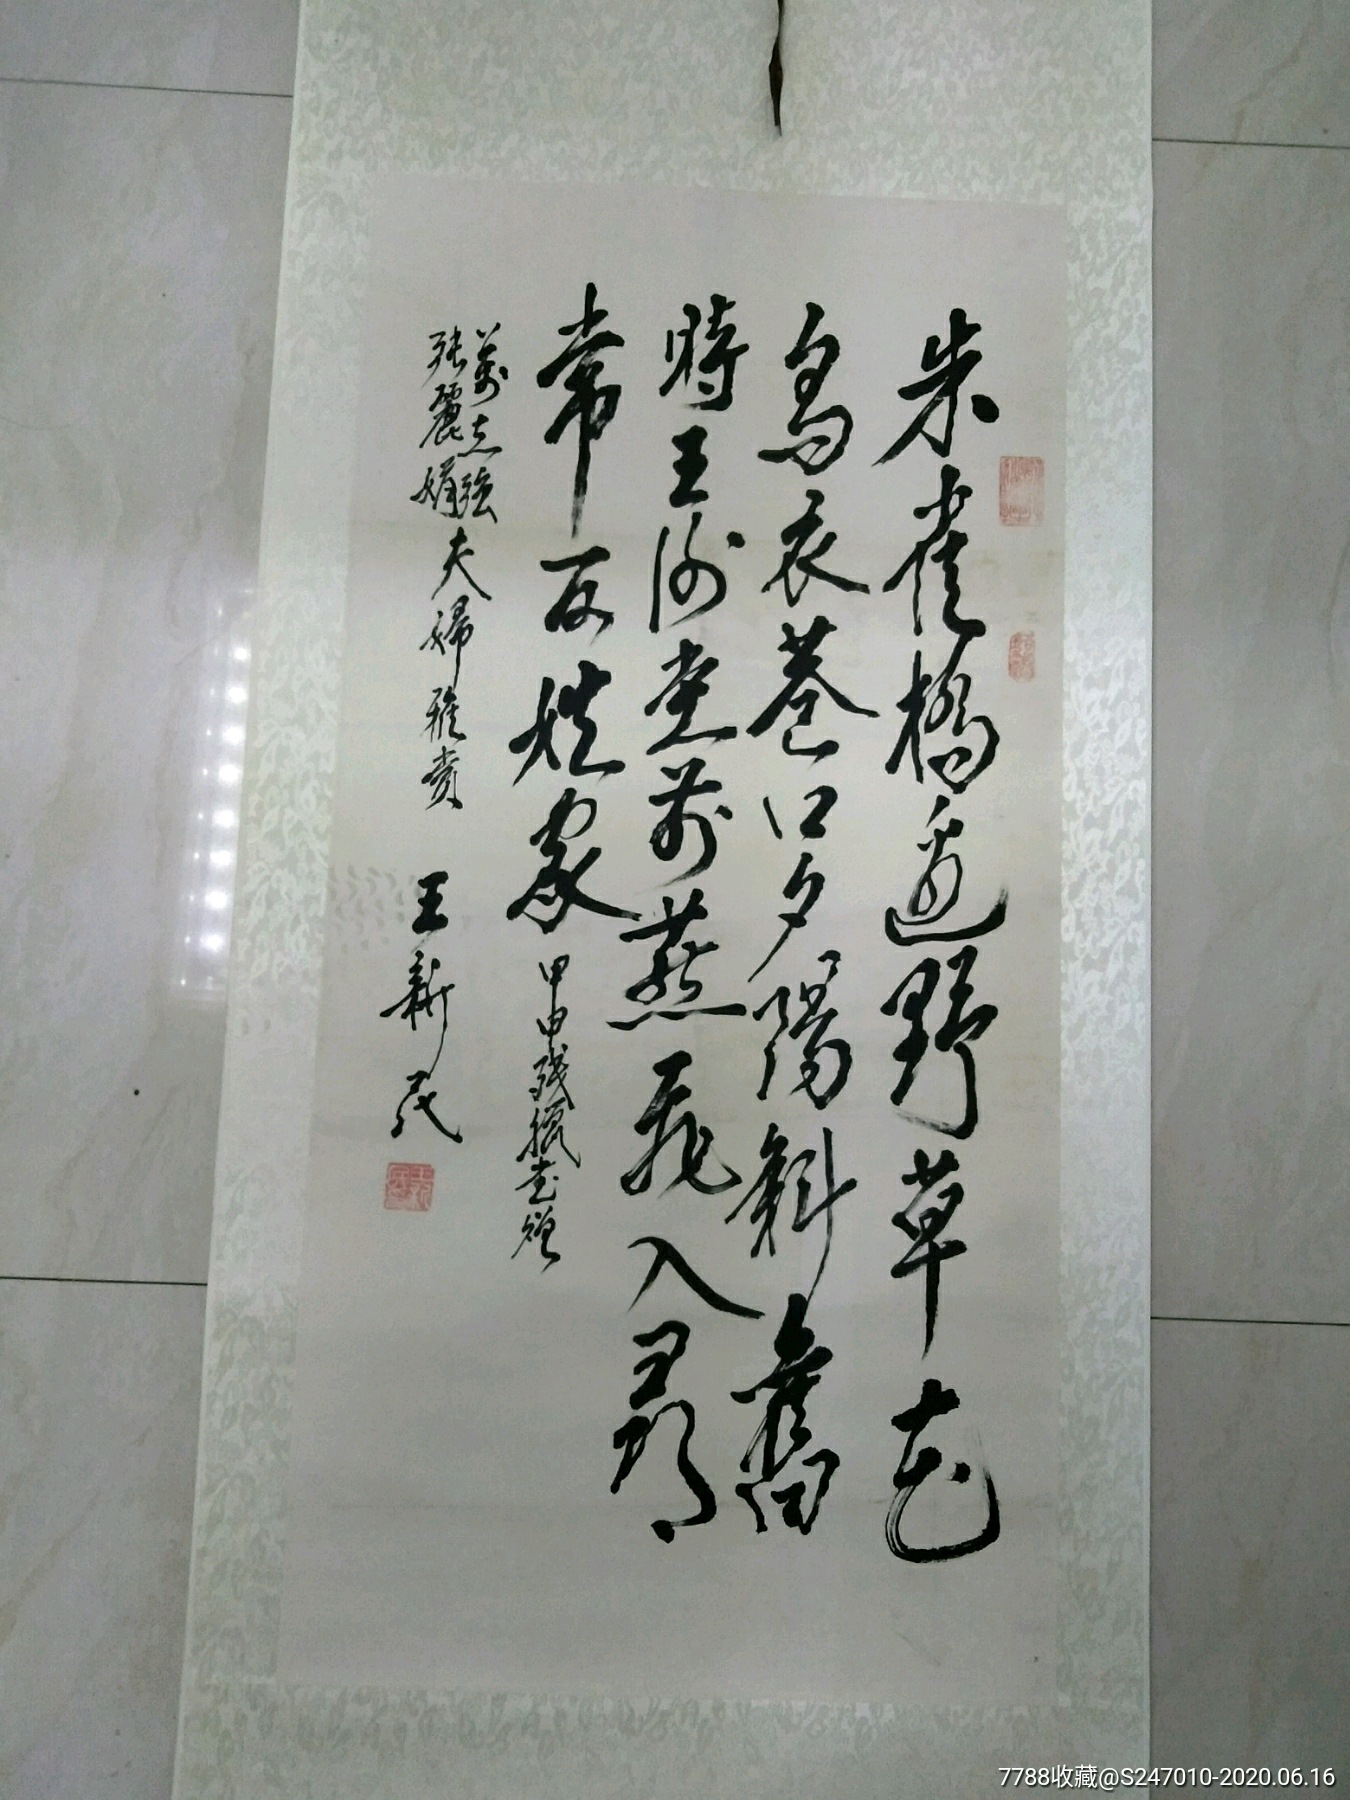 朱雀橋邊野草花
烏衣巷口夕陽斜舊
時王謝堂前燕飛入尋
常百姓家
甲申殘臘書贈
萬志強
張麗娟
夫婦雅賞
王新民
7788收藏@S247010-2020.06.16